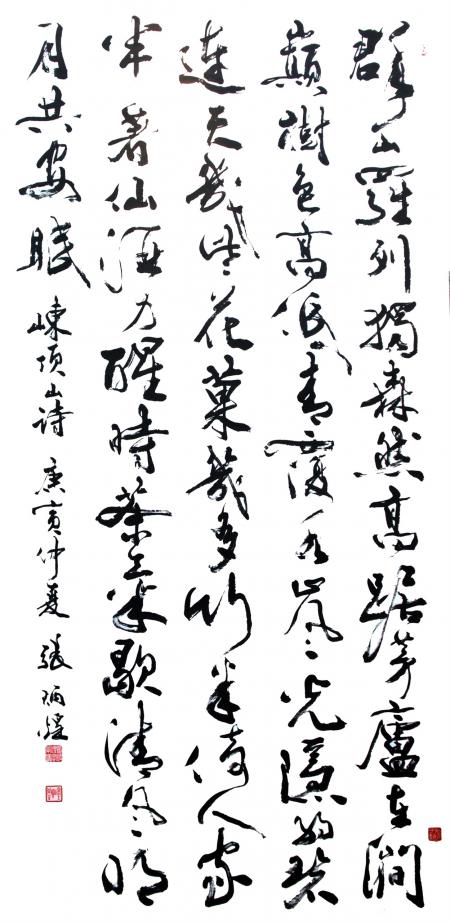 群山羅列獨森然高踞茅廬在澗
巔樹色高低青覆水嵐光隱約碧
連天幾花菓幾多竹半倚人家
半著仙酒力醒時茶歇清風明
月共安眠 崠頂山詩 庚寅仲夏 張炳煌